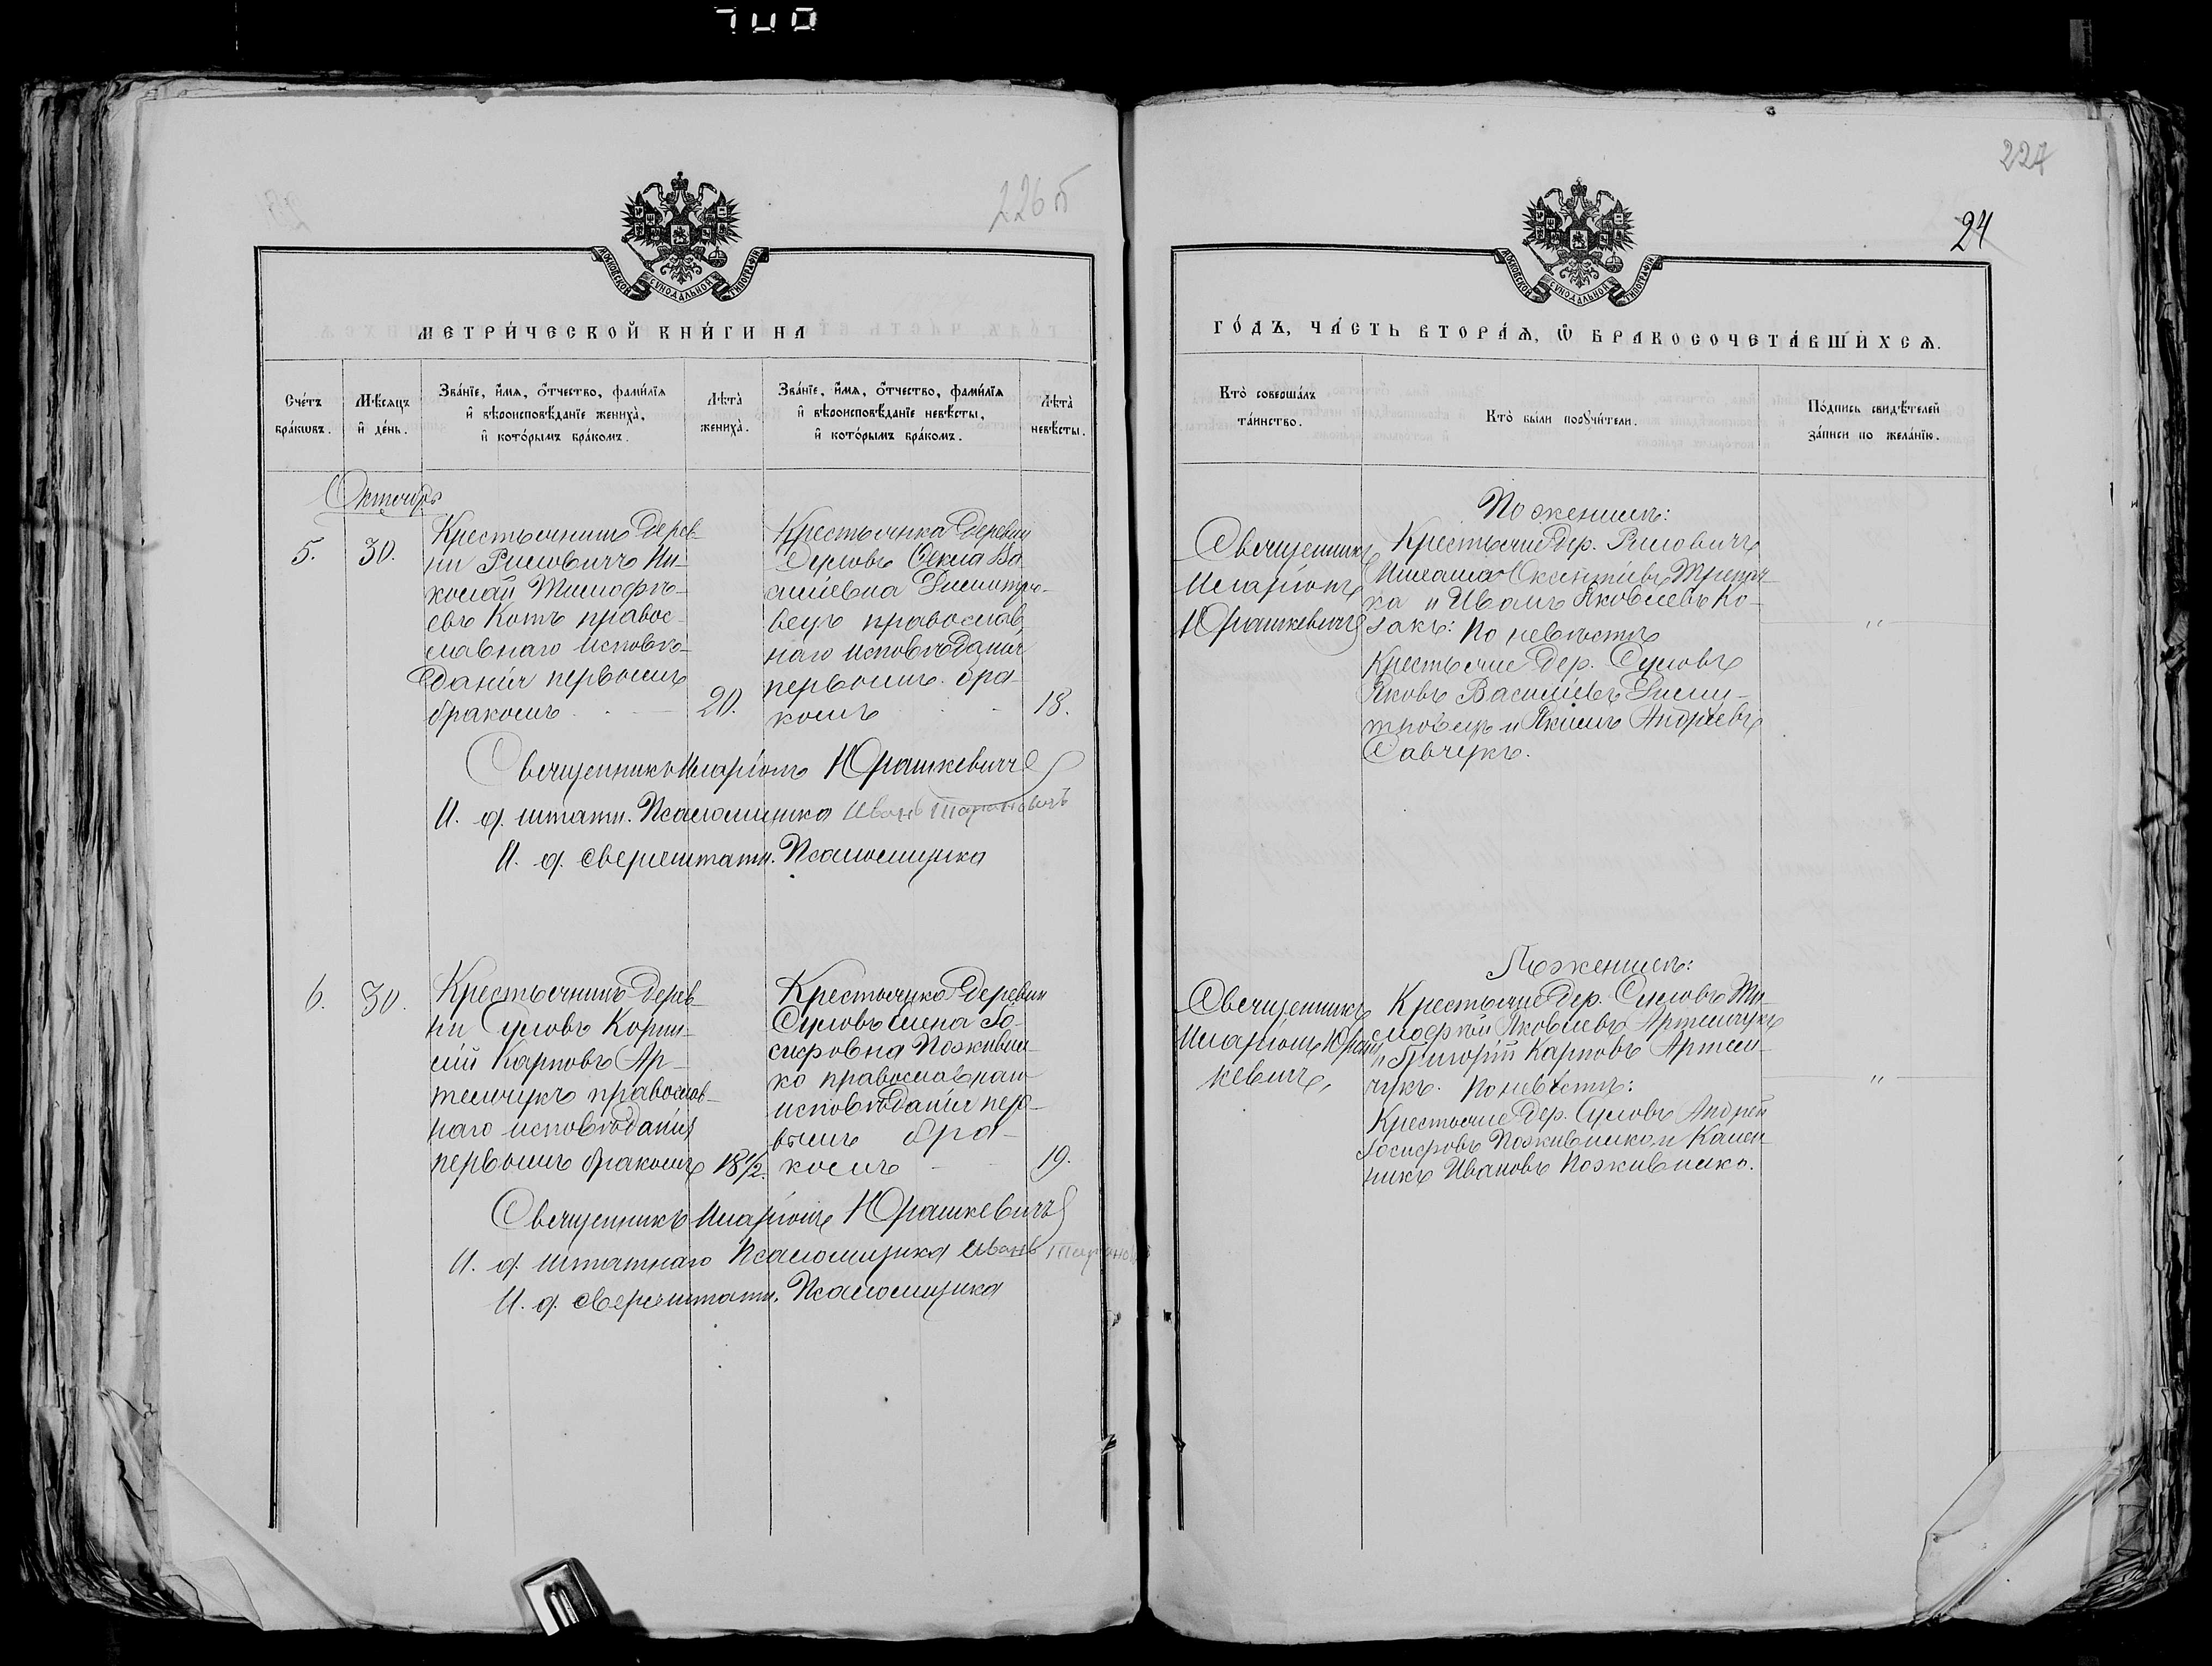 700
226б
МОСКОВСКОЙ СѴНОДАЛЬНОЙ ТИПОГРАФІИ
МЕТРИ́ЧЕСКОЙ КНИ́ГИ НА
Сче́тъ бра́кѡвъ.
Мѣ́сяцъ и҆ де́нь.
Зва́нїе, и҆́мѧ, ѻ҆́тчество, фами́лїѧ
и҆ вѣроисповѣ́данїе жениха̀,
и҆ кото́рымъ бра́комъ.
Лѣта̀ жениха̀.
Зва́нїе, и҆́мѧ, ѻ҆́тчество, фами́лїѧ
и҆ вѣроисповѣ́данїе невѣ́сты,
и҆ кото́рымъ бра́комъ.
Лѣта̀ невѣ́сты.
Октябрь
5.
30.
Крестьянинъ дерев-
ни Риловичъ Ни-
колай Тимофѣ-
евъ Котъ правос-
лавнаго исповѣ-
данія первымъ
бракомъ
20.
Крестьянка деревни
Ѳекла Ва-
силіевна Димитро-
вецъ православ
наго исповѣданія
первымъ бра-
комъ
18.
Священникъ Иларіонъ Юрашкевичъ
И. д. штатн. Псаломщика Иванъ
И. д. сверхштатн. Псаломщика
6.
30.
Крестьянинъ дерев-
ни Суловъ Корни-
лій Карповъ Ар-
темчукъ православ-
наго исповѣданія
первымъ бракомъ
18 1/2.
Крестьянка деревни
Суловъ Елена Іо-
сифовна Поживил-
ко православнаго
исповѣданія пер-
вымъ бра-
комъ
19.
Священникъ Иларіонъ Юрашкевичъ
И. д. штатнаго Псаломщика Иванъ
И. д. сверхштатн. Псаломщика
227
24
МОСКОВСКОЙ СѴНОДАЛЬНОЙ ТИПОГРАФІИ
ГО́ДЪ, ЧА́СТЬ ВТОРА́Ѧ, Ѽ БРАКОСОЧЕТА́ВШИХСѦ.
Кто̀ соверша́лъ
та́инство.
Кто̀ бы́ли порꙋчи́тели.
По́дпись свидѣ́телей
за́писи по жела́нїю.
По женихѣ:
Священникъ
Иларіонъ
Юрашкевичъ
Крестьяне дер. Риловичъ
ка и Иванъ Яковлевъ Ко-
закъ: По невѣстѣ
Крестьяне дер. Суловъ
Яковъ Василіевъ Дими-
тровецъ и Якимъ Андреевъ
Савчукъ.
"
По женихѣ:
Священникъ
Иларіонъ Юраш
кевичъ,
Крестьяне дер. Суловъ Ти-
мофей Яковлевъ Артемчукъ
и Григорій Карповъ Артем-
чукъ. По невѣстѣ:
Крестьяне дер. Суловъ Андрей
Іосифовъ Поживилко и Калин
никъ Ивановъ Поживилко.
"